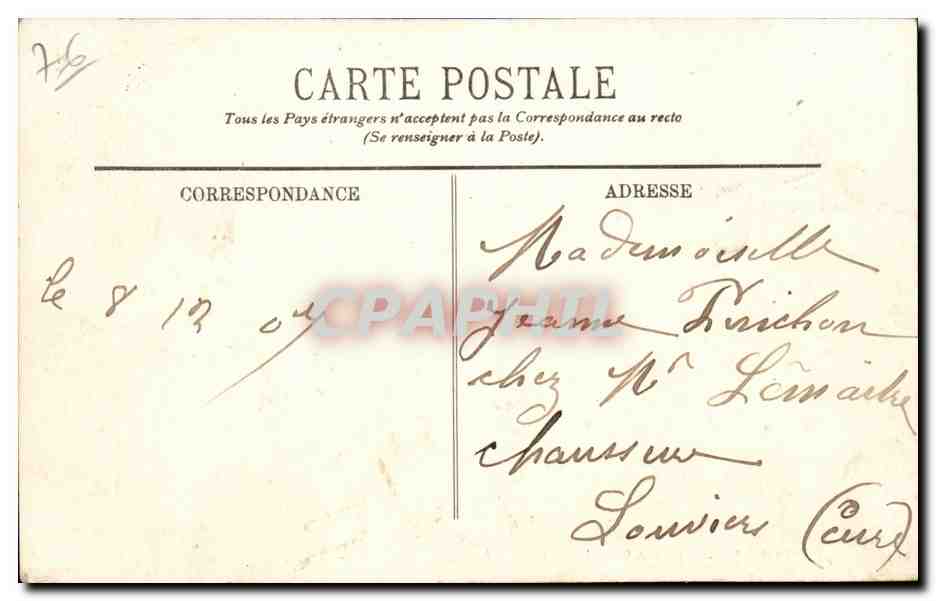 76
CARTE POSTALE
Tous les Pays étrangers n'acceptent pas la Correspondance au recto
(Se renseigner à la Poste).
CORRESPONDANCE
ADRESSE
le 8 12 07
CPAPHIL
Mademoiselle
Jeanne
chez Mr Lemaitre
chausseur
Louviers (Eure)